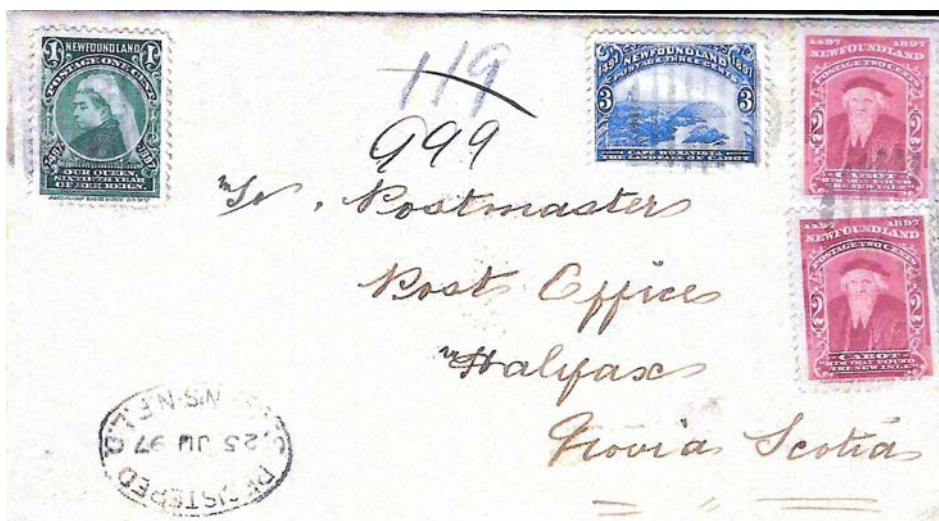 1 NEWFOUNDLAND 1
POSTAGE ONE CENT
1497 1897
OUR QUEEN,
SIXTIETH YEAR
OF HER REIGN.
119
999
1497 NEWFOUNDLAND 1897
POSTAGE THREE CENTS
3 3
CAPE BONAVISTA
THE LANDFALL OF CABOT
1497 1897
NEWFOUNDLAND
POSTAGE TWO CENTS
2 2
CABOT
THE NEW ISLE
1497 1897
NEWFOUNDLAND
POSTAGE TWO CENTS
2 2
CABOT
"HYM THAT FOUND
THE NEW ISLE"
To, Postmaster
Post Office
Halifax
Novia Scotia
REGISTERED
25 JU 97
N.F.L.D.